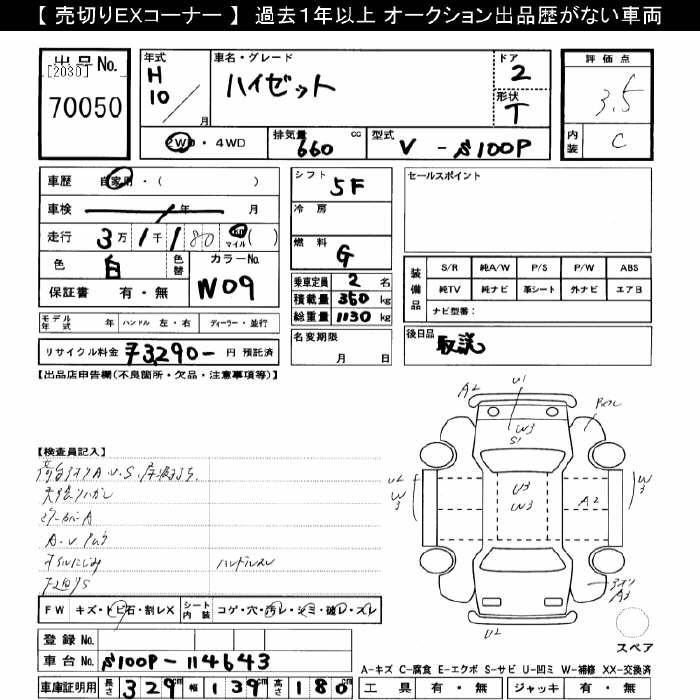 【 売切りEXコーナー 】 過去１年以上 オークション出品歴がない車両
出品No. [2030] 70050
年式 H 10 / 月
車名・グレード ハイゼット
ドア 2
形状 T
評価点 3.5
内装 C
2WD ・ 4WD
排気量 660 cc
型式 V - S100P
車歴 自家用 ・ ( )
車検 年 月
走行 3万 1千 180 km マイル ( )
色 白 色替
カラーNo. W09
保証書 有 ・ 無
シフト 5F
冷房
燃料 G
乗車定員 2 名
積載量 350 kg
総重量 1130 kg
名変期限 月 日
セールスポイント
装備品 S/R 純A/W P/S P/W ABS
純TV 純ナビ 革シート 外ナビ エアB
ナビ型番：
モデル年式 年 ハンドル 左・右 ディーラー・並行
リサイクル料金 ¥3,290- 円 預託済
後日品 取説
【出品店申告欄(不良箇所・欠品・注意事項等)】
A2 U1
W3
S1
U2 W3
U3 W3
A2
W3
A3
U2
スペア
【検査員記入】
天張りハガレ
ミラーカバーA
オイルにじみ
ハンドルスレ
FW キズ・トビ石・割レX
シート内装 コゲ・穴・汚レ・シミ・破レ・スレ
登録No.
車台No. S100P-114643
車庫証明用 長さ 329 cm 幅 139 cm 高さ 180 cm
A-キズ C-腐食 E-エクボ S-サビ U-凹ミ W-補修 XX-交換済
工具 有 ・ 無 ジャッキ 有 ・ 無